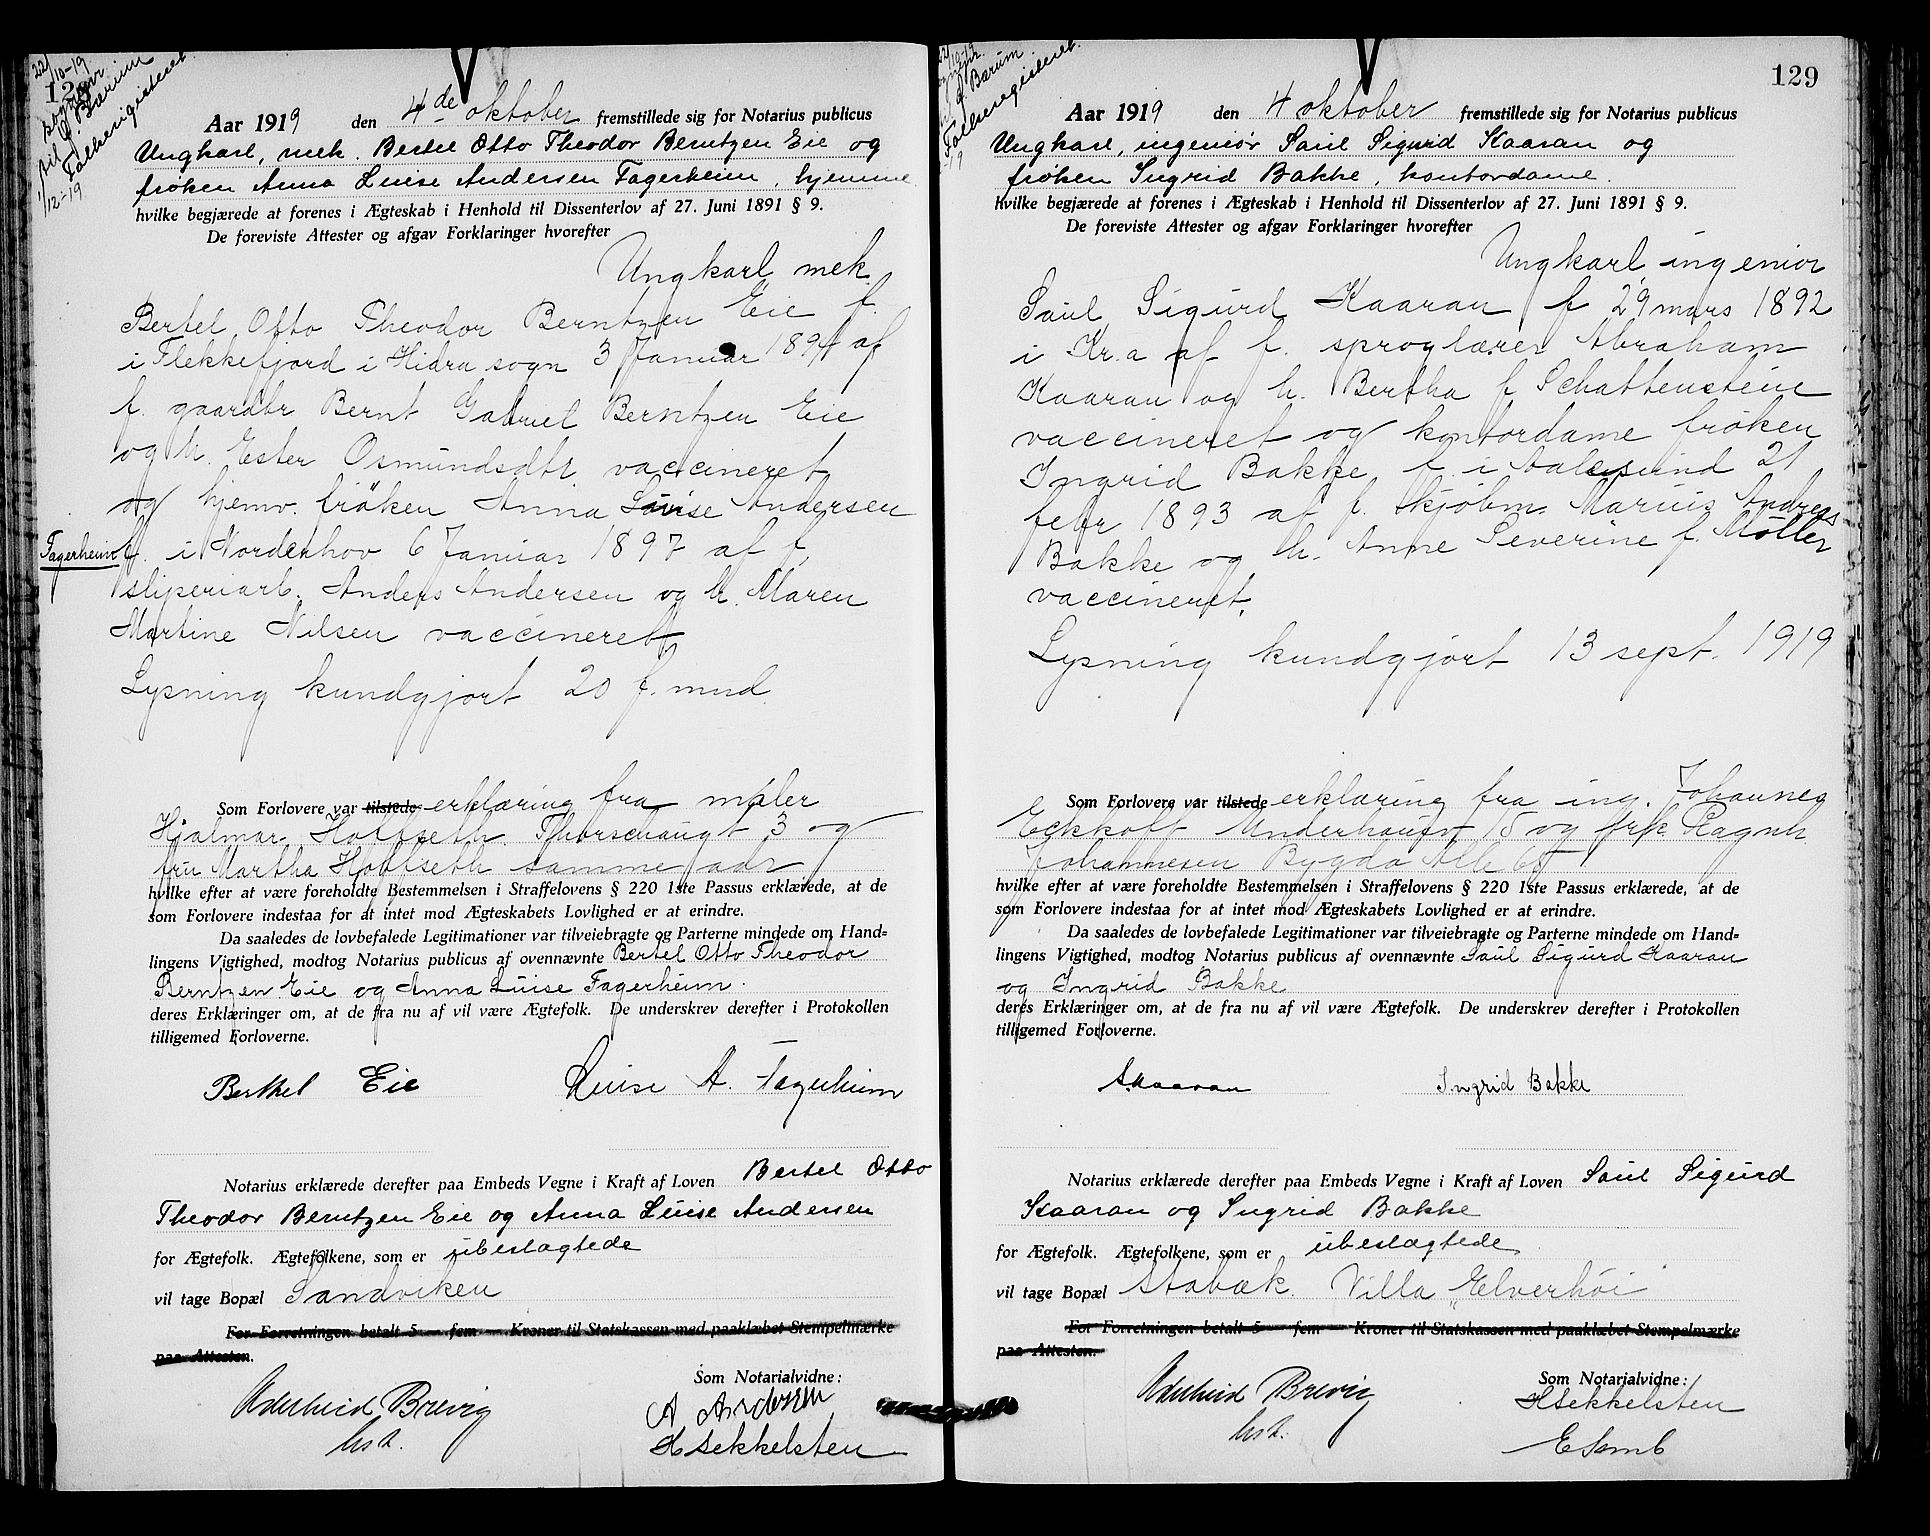 22/10-19
sognepr.
til Ø. Bærum
Folkeregisteret
1/12-19
Aar 1919 den 4de oktober fremstillede sig for Notarius publicus
Ungkarl, mek. Bertel Otto Theodor Berntzen Eie og
frøken Anna Luise Andersen Fagerheim, hjemme
hvilke begjærede at forenes i Ægteskab i Henhold til Dissenterlov af 27. Juni 1891 § 9.
De foreviste Attester og afgav Forklaringer hvorefter
Ungkarl mek.
Bertel Otto Theodor Berntzen Eie f.
i Flekkefjord i Hidra sogn 3 Januar 1894 af
f. gaardbr Bernt Gabriel Berntzen Eie
og h. Ester Osmundsdtr. vaccineret
og hjemv. frøken Anna Louise Andersen
Fagerheim f. i Norderhov 6 Januar 1897 af f.
sliperiarb. Anders Andersen og h. Maren
Martine Nilsen vaccineret
Lysning kundgjort 20 f. mnd
Som Forlovere var tilstede erklæring fra maler
Hjalmar Hoffseth Thorschougt 3 og
fru Martha Hoffseth samme aar
hvilke efter at være foreholdte Bestemmelsen i Straffelovens § 220 1ste Passus erklærede, at de
som Forlovere indestaa for at intet mod Ægteskabets Lovlighed er at erindre.
Da saaledes de lovbefalede Legitimationer var tilveiebragte og Parterne mindede om Hand-
lingens Vigtighed, modtog Notarius publicus af ovennævnte Bertel Otto Theodor
Berntzen Eie og Anna Luise Fagerheim.
deres Erklæringer om, at de fra nu af vil være Ægtefolk. De underskrev derefter i Protokollen
tilligemed Forloverne.
Berthel Eie Luise A. Fagerheim
Notarius erklærede derefter paa Embeds Vegne i Kraft af Loven Bertel Otto
Theodor Berntzen Eie og Anna Luise Andersen
for Ægtefolk. Ægtefolkene, som er ubeslægtede
vil tage Bopæl Sandviken
For Forretningen betalt 5 — fem — Kroner til Statskassen med paaklæbet Stempelmærke
paa Attesten.
Som Notarialvidne:
Adelheid Brevig A Andersen
cst. H Sekkelsten
129
Aar 1919 den 4 oktober fremstillede sig for Notarius publicus
Ungkarl, ingeniør Saul Sigurd Kaaran og
frøken Ingrid Bakke, kontordame.
hvilke begjærede at forenes i Ægteskab i Henhold til Dissenterlov af 27. Juni 1891 § 9.
De foreviste Attester og afgav Forklaringer hvorefter
Ungkarl, ingeniør
Saul Sigurd Kaaran f 29 mars 1892
i Kr.a af f. sproglærer Abraham
Kaaran og h. Bertha f. Schattenstein
vaccineret og kontordame frøken
Ingrid Bakke f. i Aalesund 21
febr 1893 af f. skjøbm. Marius Andreas
Bakke og h. Anne Severine f. Møller
vaccineret.
Lysning kundgjort 13 sept. 1919
Som Forlovere var tilstede erklæring fra ing. Johannes
Eckhoff Underhaugsv 15 og frk Ragnh
Johannesen Bygdø Alle 60
hvilke efter at være foreholdte Bestemmelsen i Straffelovens § 220 1ste Passus erklærede, at de
som Forlovere indestaa for at intet mod Ægteskabets Lovlighed er at erindre.
Da saaledes de lovbefalede Legitimationer var tilveiebragte og Parterne mindede om Hand-
lingens Vigtighed, modtog Notarius publicus af ovennævnte Saul Sigurd Kaaran
og Ingrid Bakke
deres Erklæringer om, at de fra nu af vil være Ægtefolk. De underskrev derefter i Protokollen
tilligemed Forloverne.
S. Kaaran Ingrid Bakke
Notarius erklærede derefter paa Embeds Vegne i Kraft af Loven Saul Sigurd
Kaaran og Ingrid Bakke
for Ægtefolk. Ægtefolkene, som er ubeslægtede
vil tage Bopæl Stabæk. Villa "Elverhøi"
For Forretningen betalt 5 — fem — Kroner til Statskassen med paaklæbet Stempelmærke
paa Attesten.
Som Notarialvidne:
Adelheid Brevig H Sekkelsten
cst. E Semb